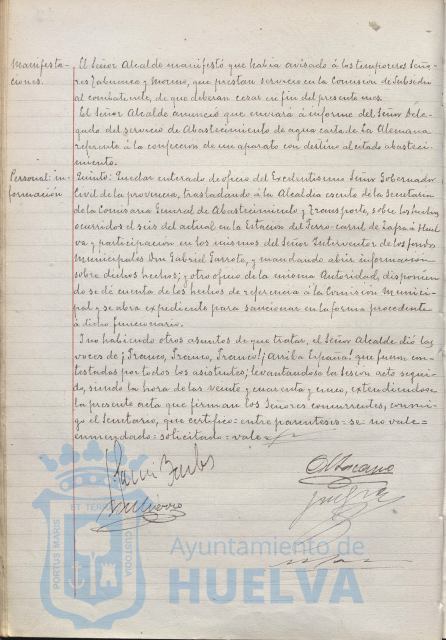 Manifesta-
ciones.
El Señor Alcalde manifestó que había avisado á los temporeros Seño-
res Zabunco y Moreno, que prestan servicio en la Comisión de Subsidio
al combatiente, de que deberán cesar en fin del presente mes.
El Señor Alcalde anunció que enviará á informe del Señor Dele-
gado del servicio de Abastecimiento de agua carta de La Alemana
referente á la confección de un aparato con destino al citado abasteci-
miento.
Personal: in-
formación
Quinto: Quedar enterado de oficio del Excelentísimo Señor Gobernador
Civil de la provincia, trasladando á la Alcaldía escrito de la Secretaría
de la Comisaría General de Abastecimiento y Transporte, sobre los hechos
ocurridos el seis del actual en la Estación del Ferro-carril de Zafra á Huel
va y participación en los mismos del Señor Interventor de los fondos
municipales Don Gabriel Garrote, y mandando abrir información
sobre dichos hechos; y otro oficio de la misma Autoridad, disponien
do se dé cuenta de los hechos de referencia á la Comisión Munici-
pal y se abra expediente para sancionar en la forma procedente
á dicho funcionario.
Y no habiendo otros asuntos de que tratar, el Señor Alcalde dió las
voces de ¡Franco, Franco, Franco! ¡Arriba España! que fueron con-
testadas por todos los asistentes; levantándose la sesión acto segui-
do, siendo la hora de las veinte y cincuenta y cinco, extendiéndose
la presente acta que firman los Señores concurrentes, conmi-
go el Secretario, que certifico = entre paréntesis = se = no vale =
enmendado = solicitado = vale =
PORTUS MARIS ET TERRAE CUSTODIA
Ayuntamiento de
HUELVA